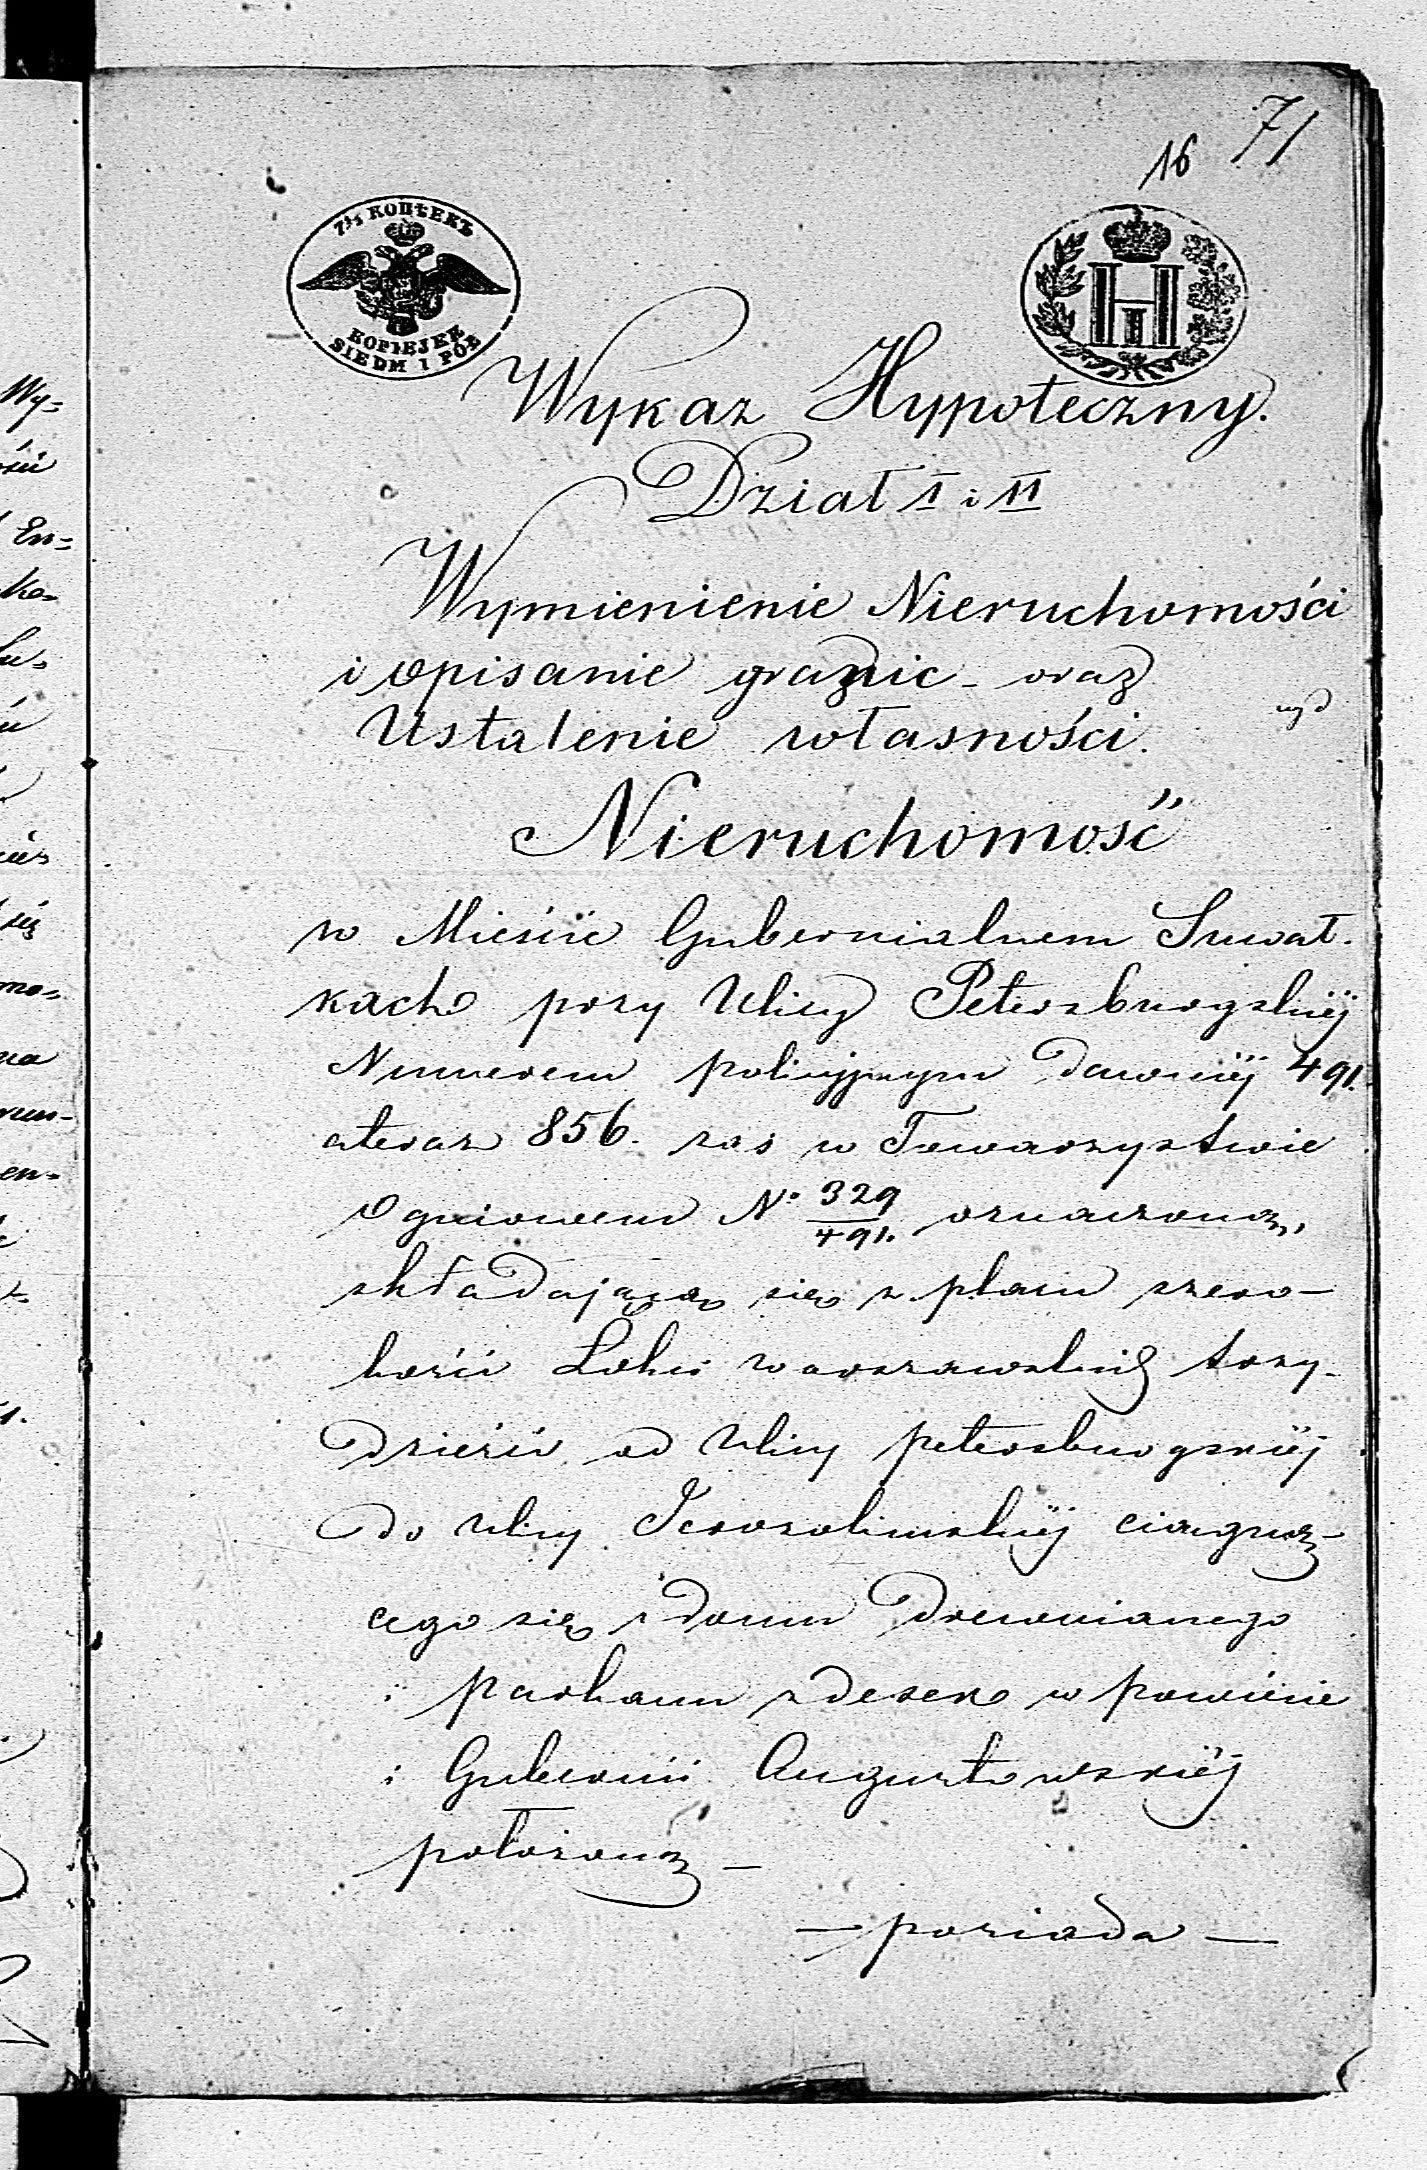 71
16
7½ КОПѢЕКЪ
KOPIEJEK
SIEDM I PÓŁ
Wykaz Hypoteczny.
Dział I i II
Wymienienie Nieruchomości
i opisanie granic - oraz
Ustalenie własności.
Nieruchomość
w Mieście Gubernialnem Suwał-
kach przy Ulicy Petersburgskiéj
Numerem policyjnym dawniéj 491.
a teraz 856. zas w Towarzystwie
Ogniowem No 329/491. oznaczona,
składająca się z placu szero-
kości Łokci warszawskich trzy-
dzieści od Ulicy petersburgskiéj
do Ulicy Jerozolimskiéj ciągną-
cego się i domu drewnianego
i parkanu z desek w powiecie
i Gubernii Augustowskiéj
położona —
— posiada —
Wy-
En-
ko-
mo-
na
en-